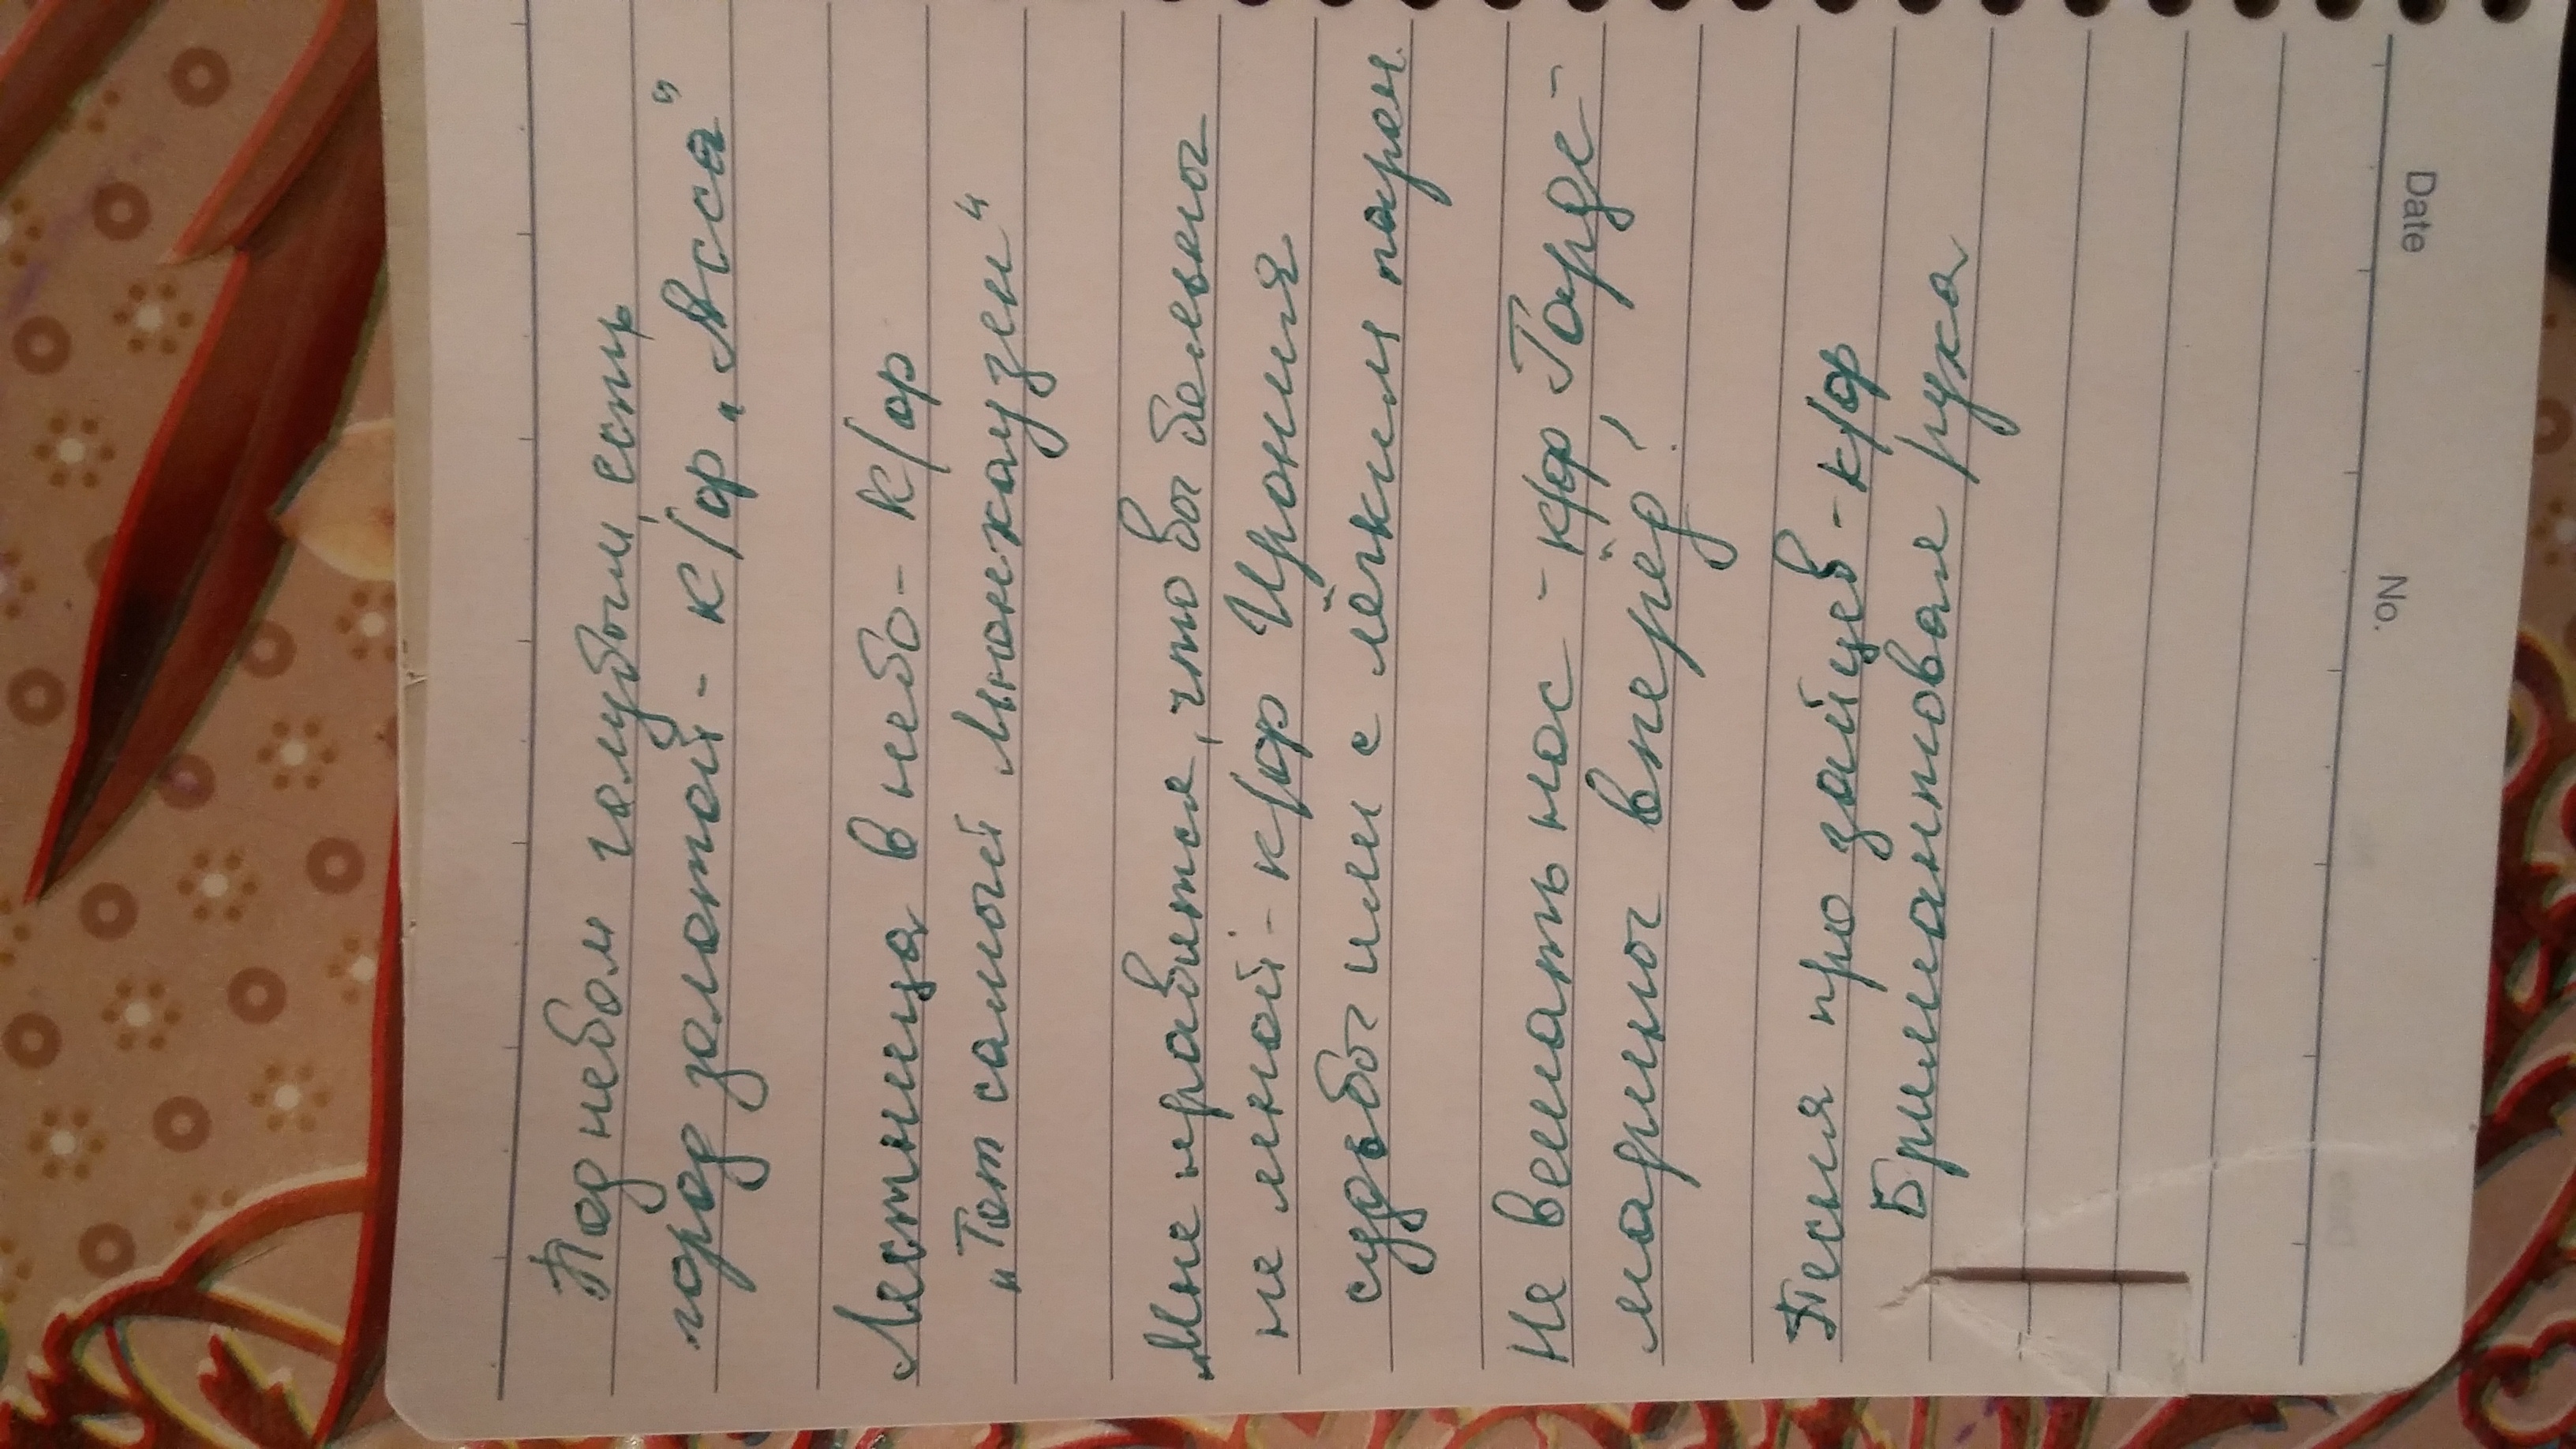 Под небом голубым, есть
город золотой - к/ф „Асса“
Лестница в небо - к/ф
„Тот самый Мюнхаузен“
„Мне нравится, что вы больны
не мной - к/ф Ирония
судьбы или с лёгким паром.
Не вешать нос - к/ф, Гарде-
марины вперёд
Песня про зайцев - к/ф
Бриллиантовая рука
Date
No.